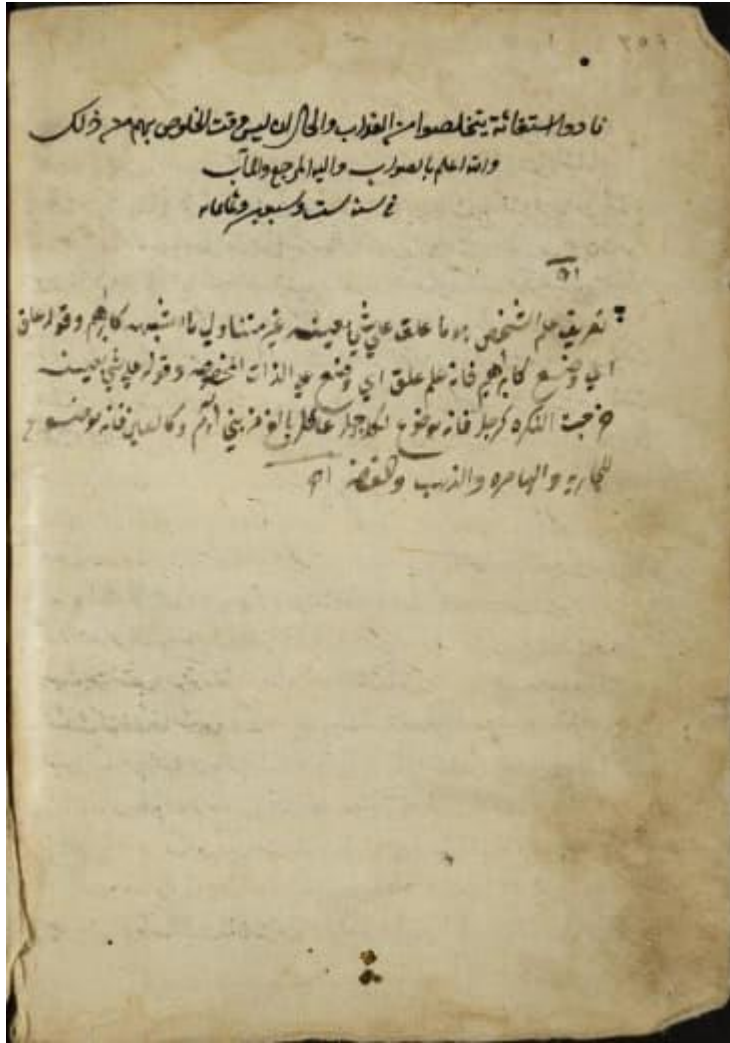 نادوا استغاثة يتخلصوا من العذاب والحال ان ليس وقت الخلوص بهم من ذلك
والله اعلم بالصواب واليه المرجع والمآب
في سنة ست وسبعين وثمانمايه
تعريف علم الشخص هو ما علق على شي بعينه غير متناول ما اشبهه كابراهم وقوله علق
اي وضع كابراهم فانه علم علق اي وضع على الذات المخصوصه وقوله على شي بعينه
خرجت النكره كرجل فانه موضوع لكل عاقل بالغ من بني آدم وكالعين فانه موضوع
للجاريه والباصره والذهب والفضة اه